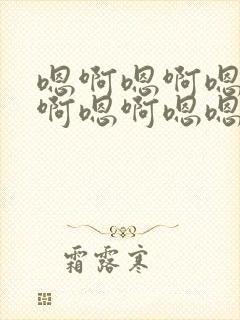 嗯啊嗯啊嗯
啊嗯啊嗯嗯
霜露寒